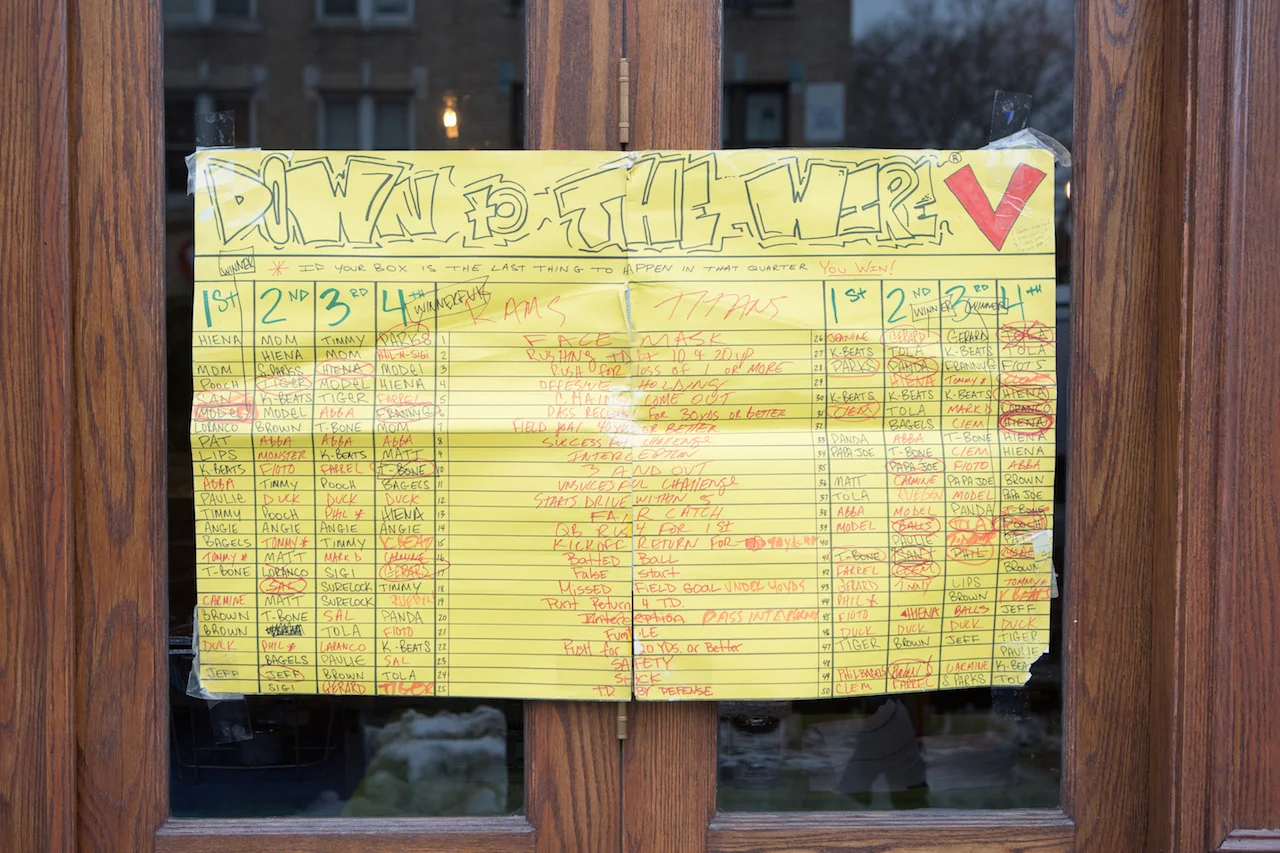 DOWN TO THE WIRE ® V
WINNER * IF YOUR BOX IS THE LAST THING TO HAPPEN IN THAT QUARTER YOU WIN!
1ST 2ND 3RD 4TH RAMS TITANS 1ST 2ND 3RD 4TH
WINNER WINNER
HIENA MOM TIMMY PARKS 1 FACE MASK 26 JEANINE GERARD GERARD
HIENA MOM 2 RUSHING TD 27 K-BEATS TOLA K-BEATS TOLA
MOM S.PARKS HIENA MODEL 3 RUSH FOR LOSS OF 1 OR MORE 28 PARKS PANDA FRANNY
POOCH TIGER MODEL HIENA 4 OFFENSIVE HOLDING 29 HIENA TOMMY*
SAN K-BEATS TIGER FARREL 5 CHAINS COME OUT 30 K-BEATS K-BEATS K-BEATS HIENA
MODEL MODEL ABBA FRANNY 6 FOR 30YDS OR BETTER 31 CLEM TOLA MARK D LORANCO
LORANCO BROWN T-BONE MOM 7 FIELD GOAL 40YDS OR BETTER 32 BAGELS CLEM HIENA
PAT ABBA ABBA ABBA 8 SUCCESSFUL CHALLENGE 33 PANDA ABBA T-BONE HIENA
LIPS MONSTER K-BEATS MATT 9 INTERCEPTION 34 PAPA JOE T-BONE CLEM HIENA
K-BEATS FIOTO FARREL T-BONE 10 3 AND OUT 35 PAPA JOE FIOTO ABBA
ABBA TIMMY POOCH BAGELS 11 UNSUCESFUL CHALLENGE 36 MATT CARMINE PAPA JOE BROWN
PAULIE DUCK DUCK DUCK 12 STARTS DRIVE WITHIN 5 37 TOLA RUEBEN MODEL PAPA JOE
TIMMY POOCH PHIL* HIENA 13 FAIR CATCH 38 ABBA MODEL PANDA T-BONE
ANGIE ANGIE ANGIE ANGIE 14 QB RUSH 4 FOR 1ST 39 MODEL BALLS TOLA POOCH
BAGELS TOMMY* TIMMY K-BEATS 15 KICKOFF RETURN FOR 40 PAULIE
TOMMY* MATT MARK D CARMINE 16 BATTED BALL 41 T-BONE SAN PHIL
T-BONE LORANCO SIGI GERARD 17 False Start 42 FARREL CLEM BROWN
SAL SURELOCK TIMMY 18 MISSED FIELD GOAL UNDER 40YDS 43 GERARD TIMMY LIPS TOMMY*
CARMINE MATT SURELOCK 19 Punt Return 4 TD. 44 PHIL* BROWN K BEATS
BROWN T-BONE SAL PANDA 20 PASS INTERFERENCE 45 FIOTO HIENA BALLS JEFF
BROWN TOLA FIOTO 21 46 DUCK DUCK DUCK DUCK
DUCK PHIL* LARANCO K-BEATS 22 Push for 20 YDS. or Better 47 TIGER BROWN JEFF TIGER
BAGELS PAULIE SAL 23 SAFETY 48 PAULIE
JEFF JEFF BROWN TOLA 24 SACK 49 PHIL BAGELS CARMINE K-BEA
SIGI GERARD TIGER 25 TD BY DEFENSE 50 CLEM FARREL S PARKS TOL